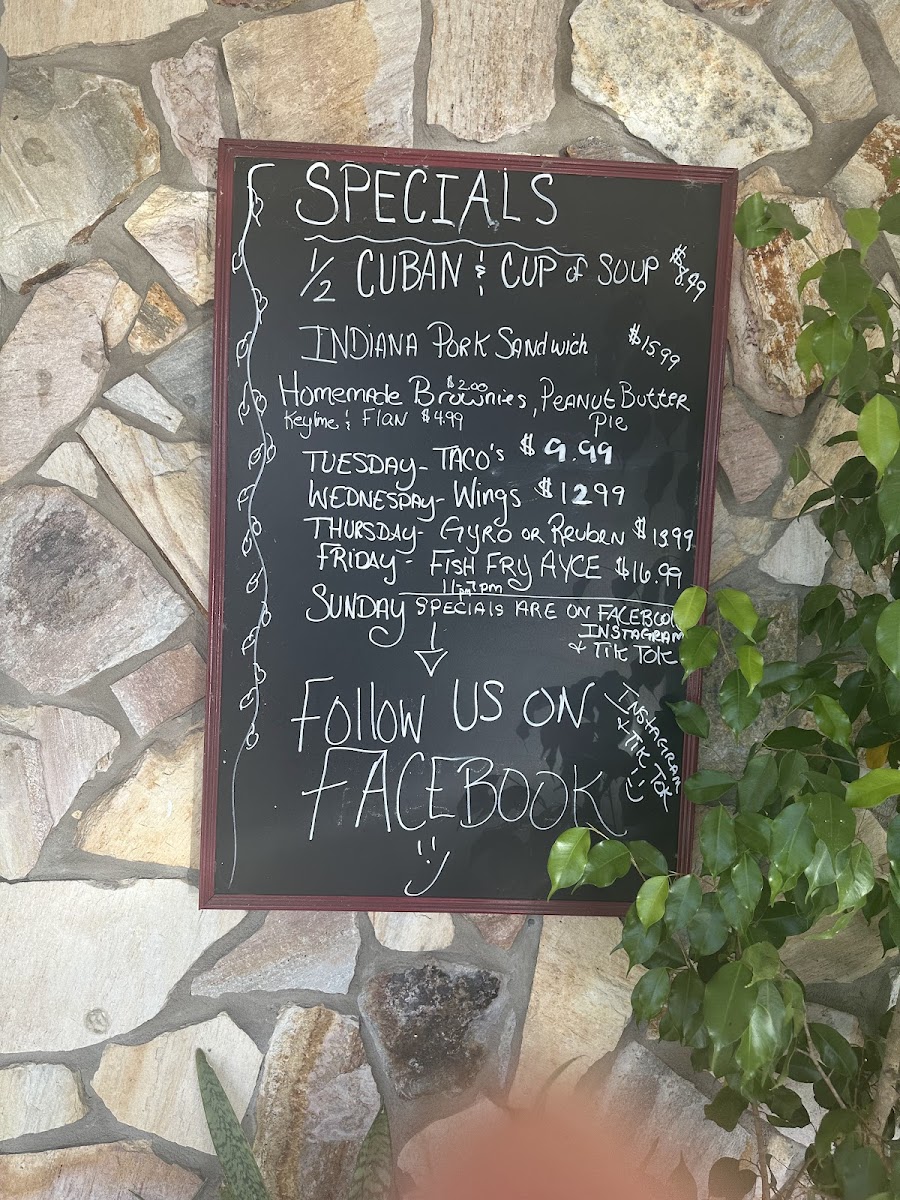 SPECIALS
1/2 CUBAN & CUP of SOUP $8.99
INDIANA PORK SandWich $15.99
Homemade Brownies, PEANUT BUTTER
$2.00
Keylime & Flan $4.99 Pie
TUESDAY- TACO's $9.99
WEDNESDAY- Wings $12.99
THURSDAY- Gyro or Reuben $13.99
FRIDAY - FISH FRY AYCE $16.99
SUNDAY SPECIALS ARE ON FACEBOOK
INSTAGRAM
& TIK TOK
FOLLOW US ON
FACEBOOK
INSTAGRAM
& TIK TOK